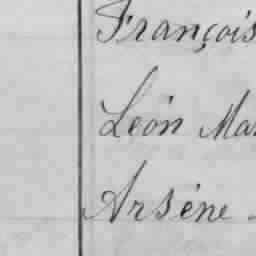 François
Léon Mar
Arsène